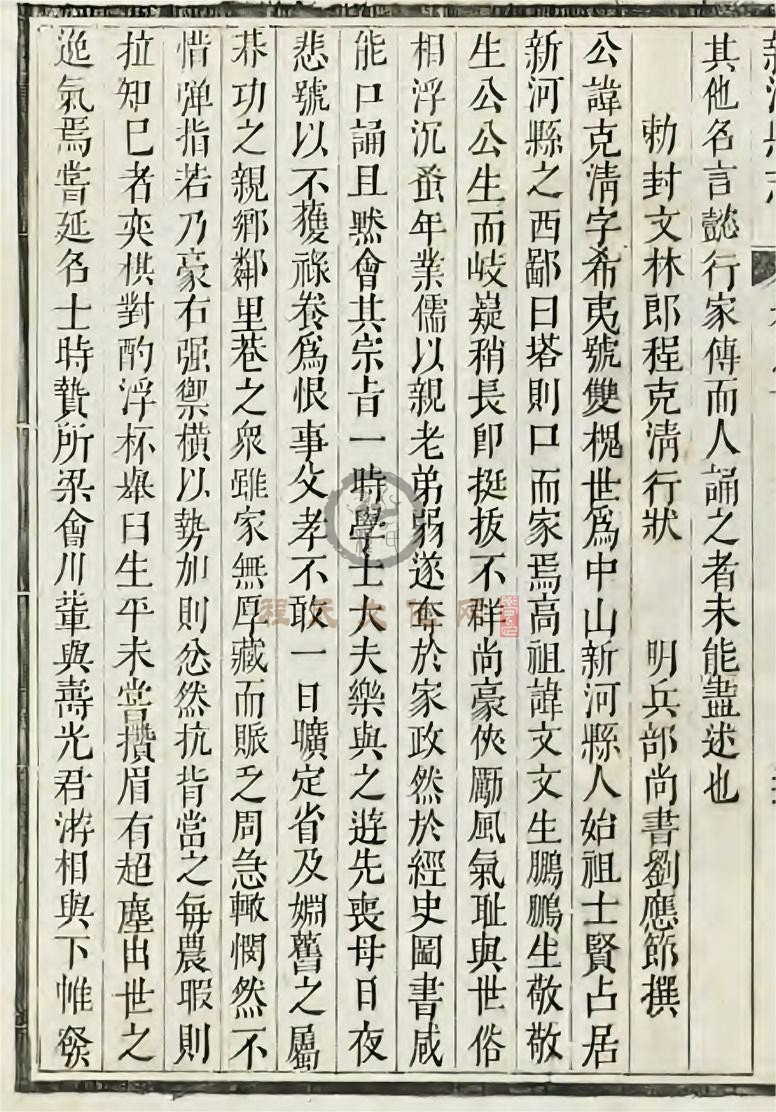 其他名言懿行家傳而人誦之者未能盡述也
勅封文林郎程克淸行狀 明兵部尚書劉應節撰
公諱克淸字希夷號雙槐世爲中山新河縣人始祖士賢占居
新河縣之西鄙曰塔則口而家焉高祖諱文文生鵬鵬生敬敬
生公公生而岐嶷稍長卽挺拔不群尚豪俠勵風氣耻與世俗
相浮沉蚤年業儒以親老弟弱遂奪於家政然於經史圖書咸
能口誦且黙會其宗旨一時學士大夫樂與之遊先喪母日夜
悲號以不獲祿養爲恨事父孝不敢一日曠定省及婣舊之屬
朞功之親鄉鄰里巷之衆雖家無厚藏而賑乏周急輙憫然不
惜彈指若乃豪右强禦橫以勢加則忿然抗背當之每農暇則
拉知已者奕棋對酌浮杯舉曰生平未嘗攢眉有超塵出世之
逸氣焉嘗延名士時贄所梁會川輩與壽光君游相與下帷
程氏文化网